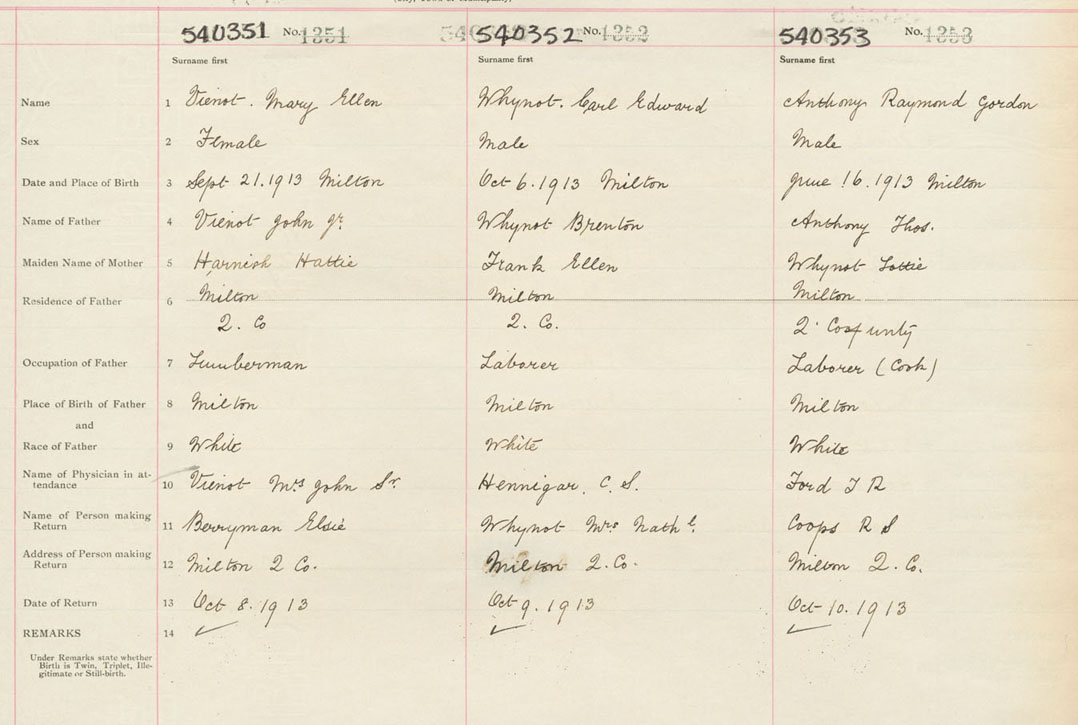 540351 No. 1351 540352 No. 1352 540353 No. 1353
Surname first Surname first Surname first
Name 1 Vienot. Mary Ellen Whynot. Carl Edward Anthony Raymond Gordon
Sex 2 Female Male Male
Date and Place of Birth 3 Sept 21.1913 Milton Oct 6.1913 Milton June 16.1913 Milton
Name of Father 4 Vienot John Jr. Whynot Brenton Anthony Thos.
Maiden Name of Mother 5 Harnish Hattie Frank Ellen Whynot Lottie
Residence of Father 6 Milton Milton Milton
Q. Co Q. Co. Q.
Occupation of Father 7 Lumberman Laborer Laborer (Cook)
Place of Birth of Father 8 Milton Milton Milton
and
Race of Father 9 White White White
Name of Physician in at-
tendance 10 Vienot Mrs John Sr. Hennigar, C. S. Ford T R
Name of Person making
Return 11 Berryman Elsie Whynot Mrs Nathl. Coops R S
Address of Person making
Return 12 Milton Q Co. Milton Q. Co. Milton Q. Co.
Date of Return 13 Oct 8.1913 Oct 9.1913 Oct 10.1913
REMARKS 14
Under Remarks state whether
Birth is Twin, Triplet, Ille-
gitimate or Still-birth.